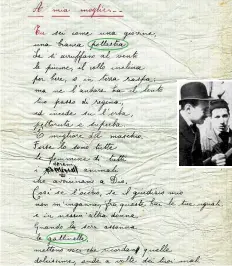 A mia moglie...
Tu sei come una giovane,
una bianca pollastra
Le s'arruffano al vento
le piume, il collo inclina
per bere, e in terra raspa;
ma ne l'andare ha il lento
tuo passo di regina,
ed incede su l'erba
pettoruta e superba
migliore del maschio
sono tutte
le femmine di tutti
i sereni animali
che avvicinano a Dio.
Così se l'occhio, se il giudizio mio
non m'inganna, fra queste hai le tue uguali
e in nessun altra donna
Quando la sera assonna
le gallinelle
mettono voci che ricordan quelle
dolcissime, onde a volte dei tuoi mali